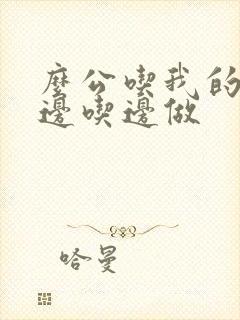 麼公喫我的
邊喫邊做
哈曼